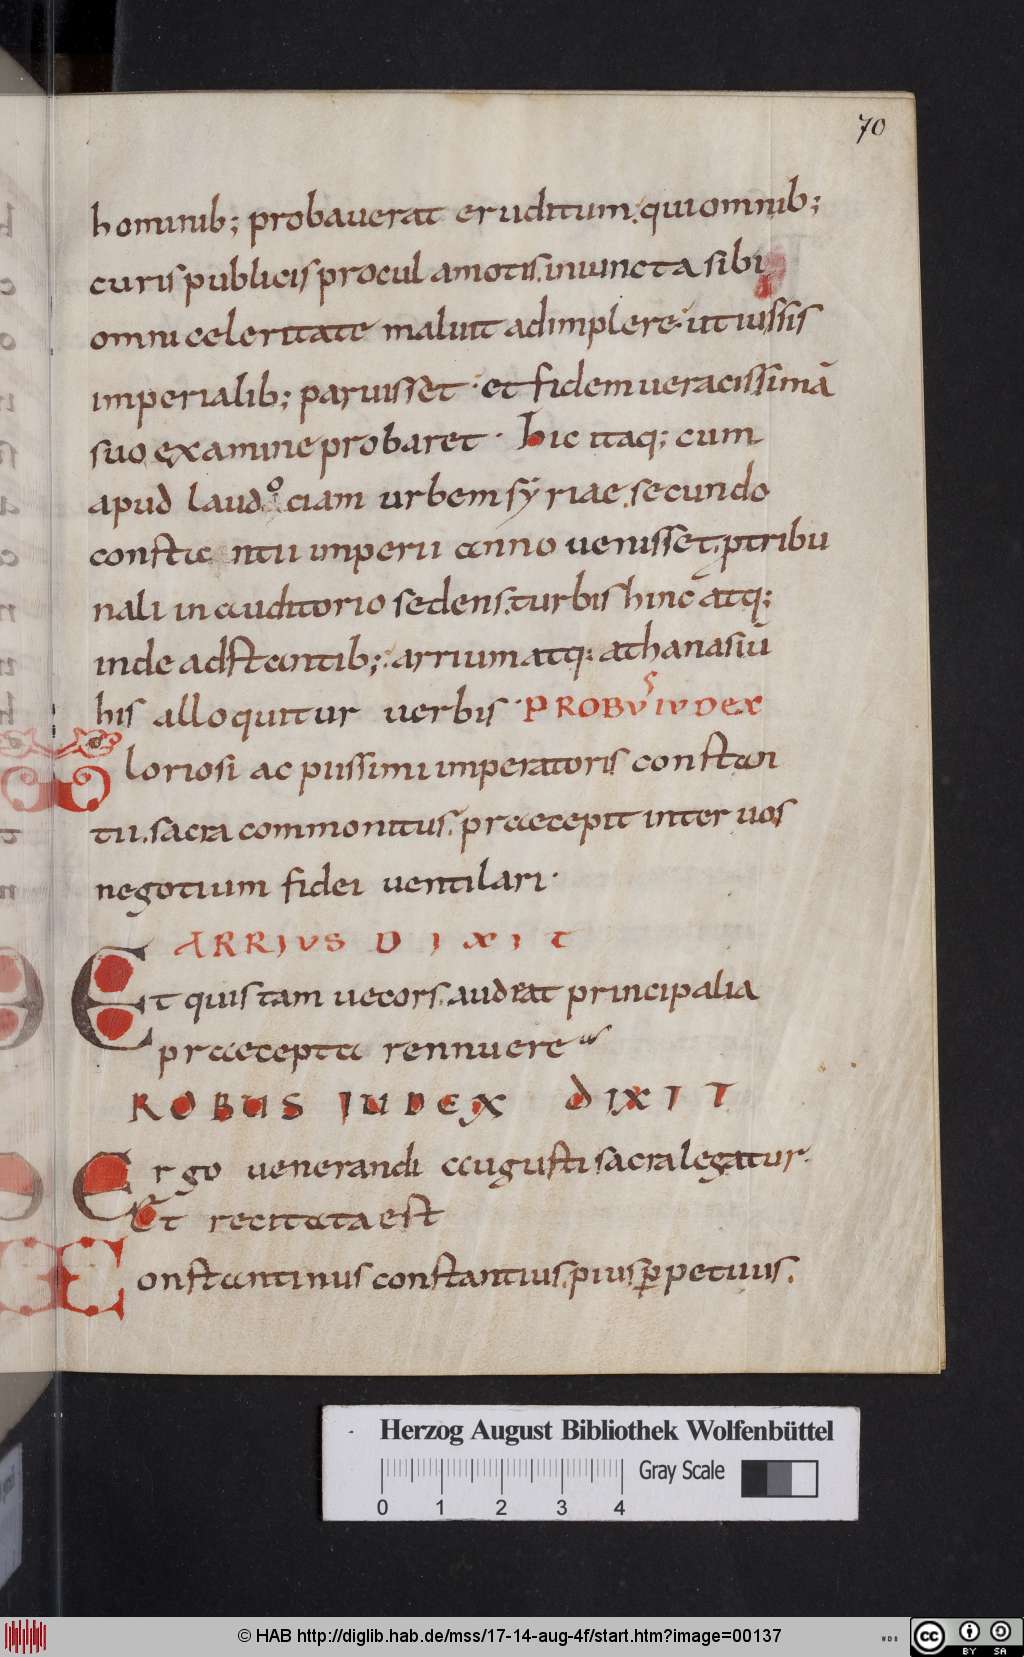 70
hominib; probauerat eruditum. qui omnib;
curis publicis procul amotis. iniuncta sibi
omni celeritate maluit adimplere. ut iussis
imperialib; paruisset. et fidem ueracissimā
suo examine probaret. hic itaq; cum
apud laudociam urbem syriae. secundo
constantii imperii anno uenisset. ꝓtribu
nali in auditorio sedens. turbis hinc atq;
inde adstantib;. arrium atq; athanasiū
his alloquitur uerbis. PROBVS IVDEX
Gloriosi ac piissimi imperatoris constan
tii. sacra commonitus. praecepit inter uos
negotium fidei uentilari.
ARRIVS DIXIT
Et quis tam uecors. audeat principalia
praecepta rennuere
ROBUS IUDEX DIXIT
Ergo uenerandi augusti sacra legatur.
Et recitata est
Constantinus constantius. pius ꝑpetuus.
Herzog August Bibliothek Wolfenbüttel
0 1 2 3 4
Gray Scale
© HAB http://diglib.hab.de/mss/17-14-aug-4f/start.htm?image=00137
WDB
cc BY SA